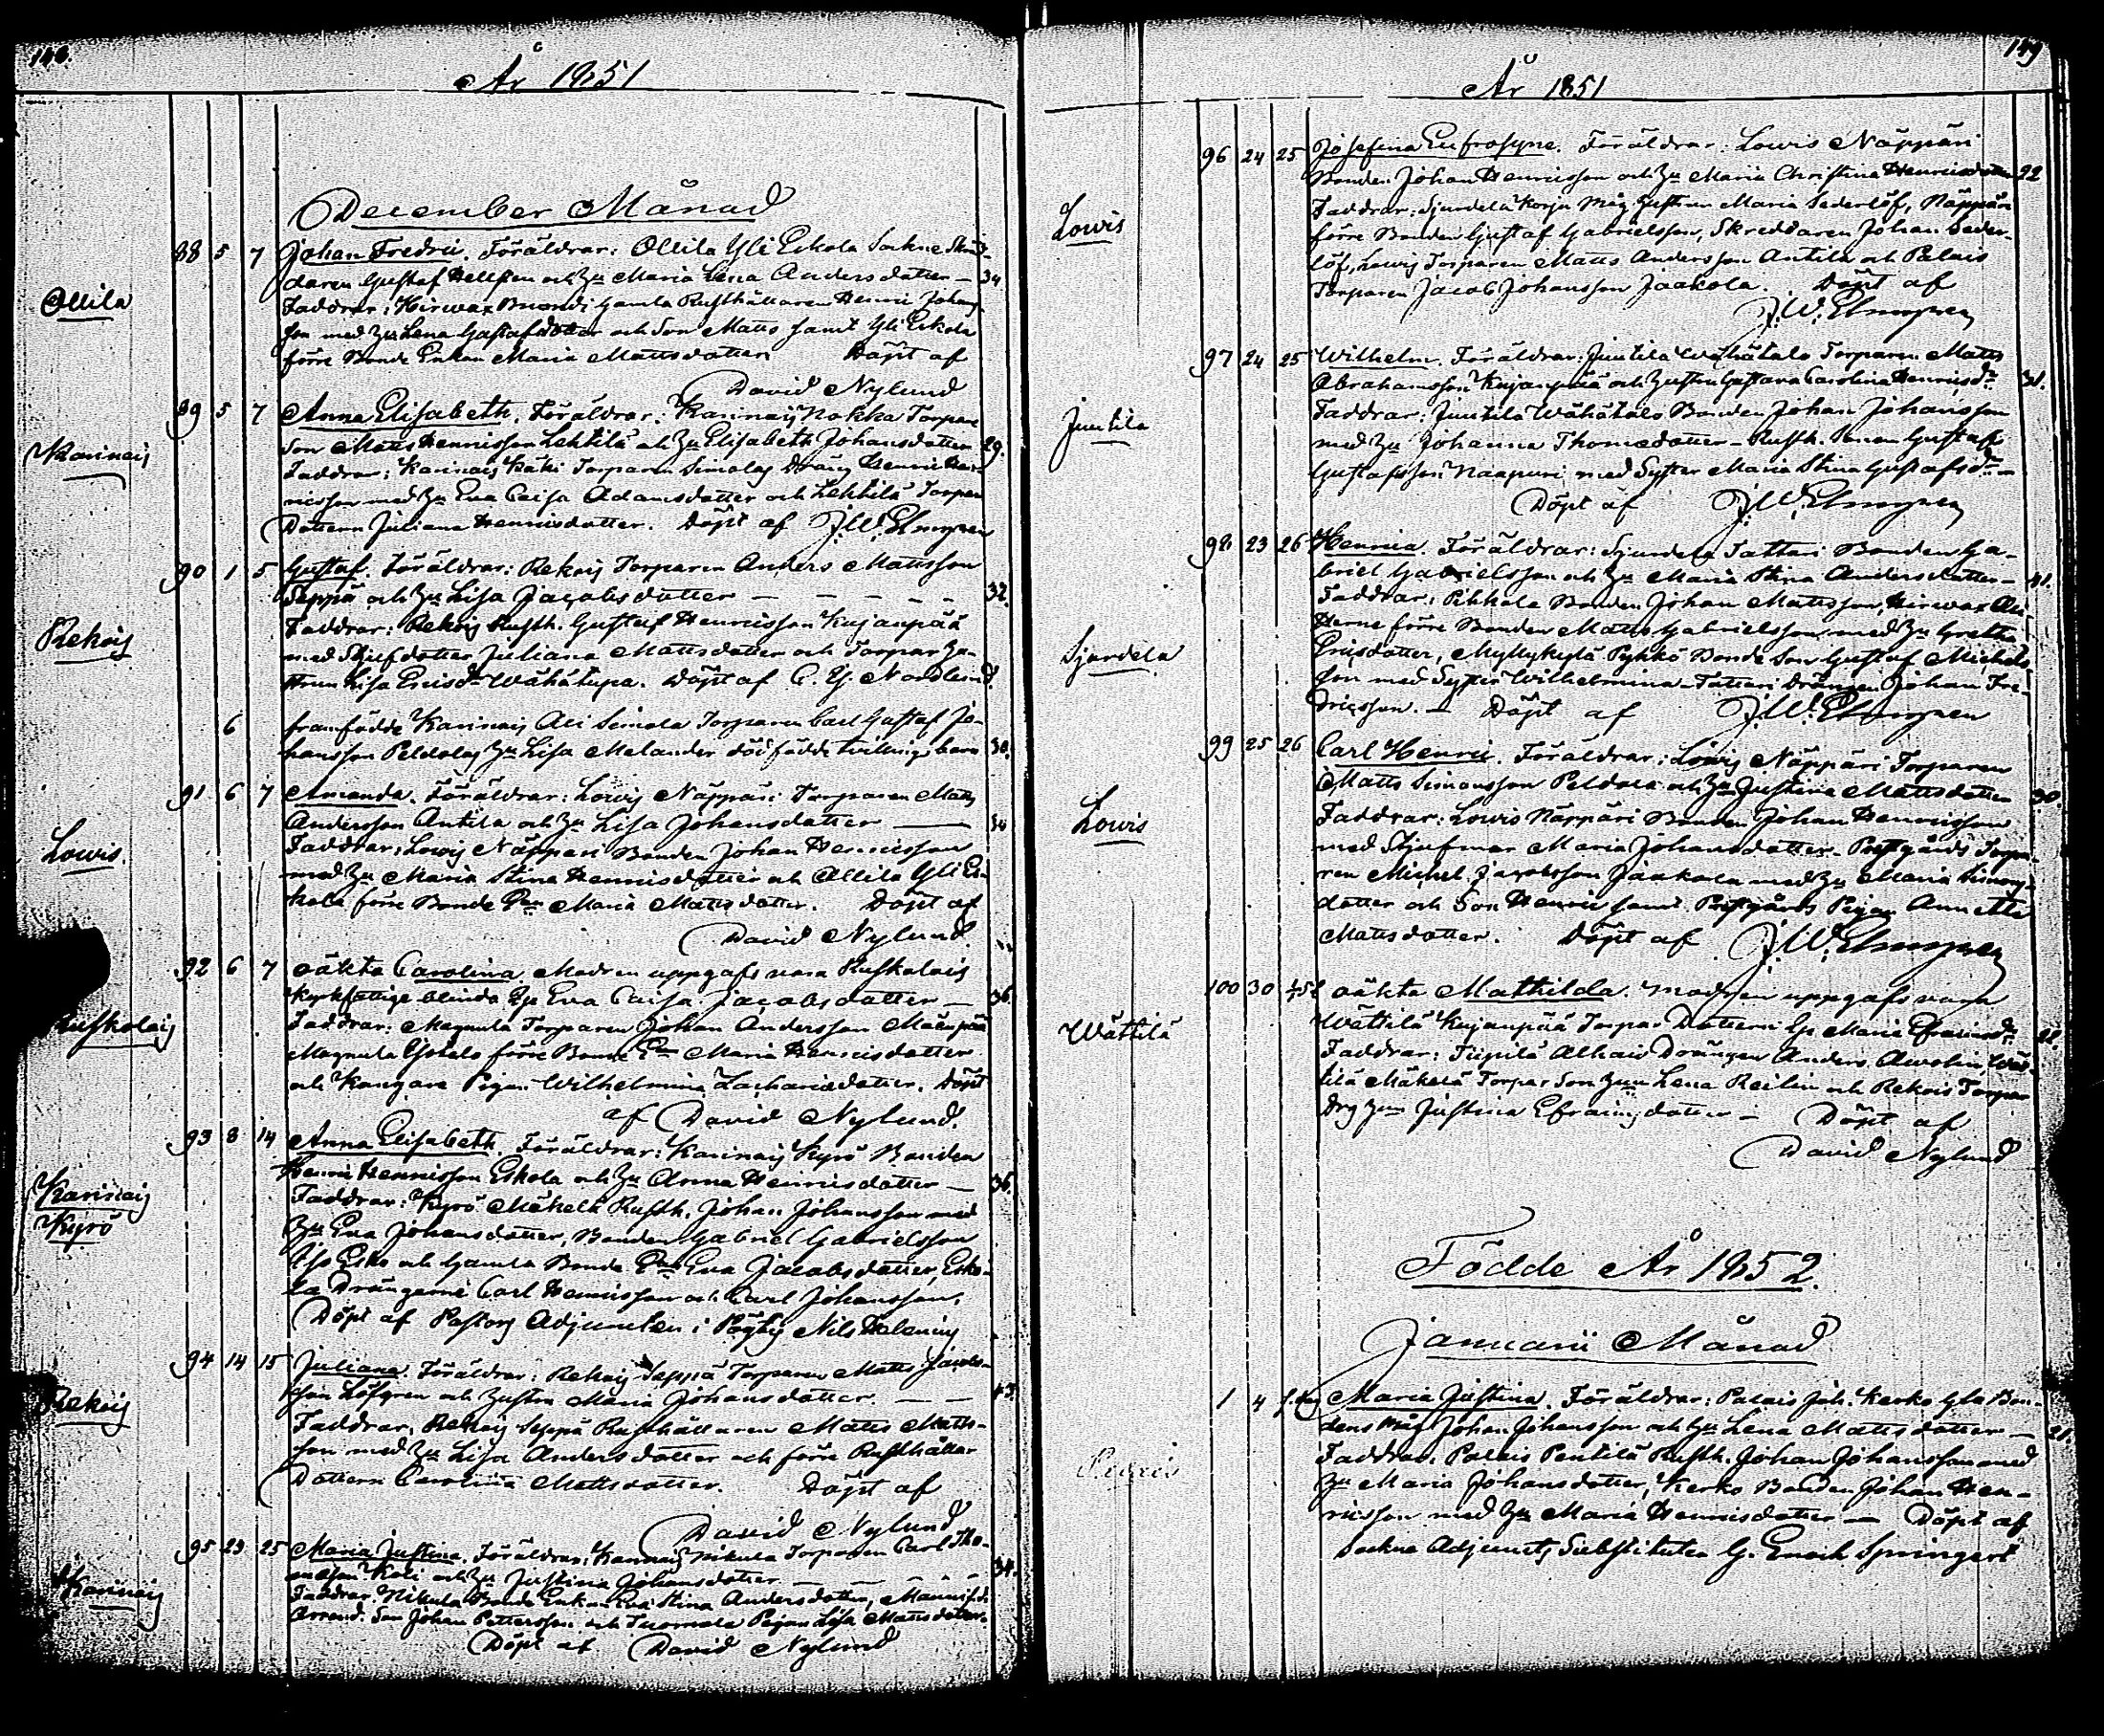 148.
År 1851
December Månad
Ollila
88 5 7 Johan Fredric. Föräldrar: Ollila Yli Eskola Sockne Skräd-
daren Gustaf Hellsten och Hu Maria Lena Andersdotter — 34
Faddrar: Hirwax Buondi Gamla Rusthållaren Henric Johans-
son med Hu Lena Gustafsdotter och Son Matts samt Yli Eskola
förre Bonde Enkan Maria Mattsdotter Döpt af
David Nylund
Karinais
89 5 7 Anna Elisabeth. Föräldrar: Karinais Nokka Torpare
Son Matts Henricsson Lehtilä och Hu Elisabeth Johansdotter 29.
Faddrar: Karinais Käki Torparen Simolas Dräng Henric Hen-
ricsson med Hu Eva Caisa Adamsdotter och Lehtilä Torpare
Dottern Juliana Henricsdotter. Döpt af J.W. Elmgren
Rekois
90 1 5 Gustaf. Föräldrar: Rekois Torparen Anders Mattsson
Seppä och Hu Lisa Jacobsdotter — — — — — 32.
Faddrar: Rekois Rusth. Gustaf Henricsson Kujanpää
med Stjufdotter Juliana Mattsdotter och Torpar Hu-
strun Lisa Ericsdr Wähätupa. Döpt af C. Ej. Nordlund.
6 framfödde Karinais Ali Simola Torparen Carl Gustaf Jo-
hansson Peldolas Hu Lisa Melander dödfödde tvillingebarn 30.
Lowis
91 6 7 Amanda. Föräldrar: Lowis Näppäri Torparen Matts
Andersson Antila och Hu Lisa Johansdotter — 34
Faddrar: Lowis Näppäri Bonden Johan Henricsson
med Hu Maria Stina Henricsdotter och Ollila Yli Es-
kola förre Bonde Maria Mattsdotter. Döpt af
David Nylund.
Ruskolais
92 6 7 oäkta Carolina. Modren uppgafs vara Ruskolais
Kyrkfattige blinda Eva Caisa Jacobsdotter — 36.
Faddrar: Magnula Torparen Johan Andersson Mäenpää
Magnula Ylistalo förre Bonde Maria Henricsdotter
och Kangare Pigan Wilhelmina Zachariædotter. Döpt
af David Nylund.
Karinais
Kyrö
93 8 14 Anna Elisabeth. Föräldrar: Karinais Kyrö Bonden
Henric Henricsson Eskola och Hu Anna Henricsdotter — 36.
Faddrar: Kyrö Mäkelä Rusth. Johan Johansson med
Hu Eva Johansdotter, Bonden Gabriel Gabrielsson
Iso Esko och Gamla Bonde Eva Jacobsdotter, Esko-
la Drängarne Carl Henricsson och Carl Johansson.
Döpt af Pastors Adjuncten i Pöytis Nils Helenius
Rekois
94 14 15 Juliana. Föräldrar: Rekois Seppä Torparen Matts Jacobs-
son Löfgren och Hustru Maria Johansdotter. — — 43.
Faddrar, Rekois Seppä Rusthållaren Matts Matts-
son med Hu Lisa Andersdotter och förre Rusthållar
Dottern Carolina Mattsdotter. Döpt af
David Nylund
Karinais
95 23 25 Maria Justina. Föräldrar: Karinais Nikula Torparen Carl Tho-
masson Kari och Hu Justina Johansdotter — 34.
Faddrar. Nikula Bonde Enkan Eva Stina Andersdotter,
Arrend. Son Johan Pettersson och Tuomola Pigan Lisa Mattsdotter.
Döpt af David Nylund
149
År 1851
Lowis
96 24 25 Josefina Eufrosyne. Föräldrar: Lowis Näppäri
Bonden Johan Henricsson och Hu Maria Christina Henricsdotter 22
Faddrar: Sjundela Korju Måg Hustrun Maria Sederlöf, Näppäri
förre Bonden Gustaf Gabrielsson, Skreddaren Johan Seder-
löf, Lowis Torparen Matts Andersson Antila och Palais
Torparen Jacob Johansson Jaakola. Döpt af
J.W. Elmgren
Juntila
97 24 25 Wilhelm. Föräldrar: Juntila Wähätalo Torparen Matts
Abrahamsson Kujanpää och Hustru Gustava Carolina Henricsdr 31.
Faddrar: Juntilä Wähätalo Bonden Johan Johansson
med Hu Johanna Thomædotter — Rusth. Sonen Gustaf
Gustafsson Naapuri med Syster Maria Stina Gustafsdr —
Döpt af J.W. Elmgren
Sjundela
98 23 26 Henrica. Föräldrar: Sjundela Tattari Bonden Ga-
briel Gabrielsson och Hu Maria Stina Andersdotter — 41.
Faddrar: Pihkala Bonden Johan Mattsson, Hirwax Ali
Herne förre Bonden Matts Gabrielsson med Hu Gretha
Ericsdotter, Myllykylä Pyhkö Bonde Son Gustaf Michels-
son med Syster Wilhelmina — Tattari Drängen Johan Fre-
dricsson. — Döpt af J.W. Elmgren
Lowis
99 25 26 Carl Henric. Föräldrar: Lowis Näppäri Torparen
Matts Simonsson Peldola och Hu Justina Mattsdotter 30.
Faddrar: Lowis Näppäri Bonden Johan Henricsson
med Stjufmor Maria Johansdotter — Prestgårds Torpa-
ren Michel Jacobsson Jaakola med Hu Maria Simons-
dotter och Son Henric samt Prestgårds Pigan Annetta
Mattsdotter. Döpt af J.W. Elmgren
Wättilä
100 30 oäkta Mathilda. Modren uppgafs vara
Wättilä Kujanpää Torpar Dottern Maria Efraimsdr 28.
Faddrar: Tiipilä Alhais Drängen Anders Awolin, Wät-
tilä Mäkelä Torpar Son Hun Lena Reilin och Rekois Torpar
Drg Hun Justina Efraimsdotter — Döpt af
David Nylund
Födde År 1852.
Januarii Månad
1 4 Maria Justina. Föräldrar: Palais Joh. Kerko Gla Bon-
dens Måg Johan Johansson och Hu Lena Mattsdotter — 21.
Faddrar. Palais Pentilä Rusth. Johan Johansson med
Hu Maria Johansdotter, Kerko Bonden Johan Hen-
ricsson med Hu Maria Henricsdotter — Döpt af
Sockne Adjuncts Substituten G. Enoch Springert